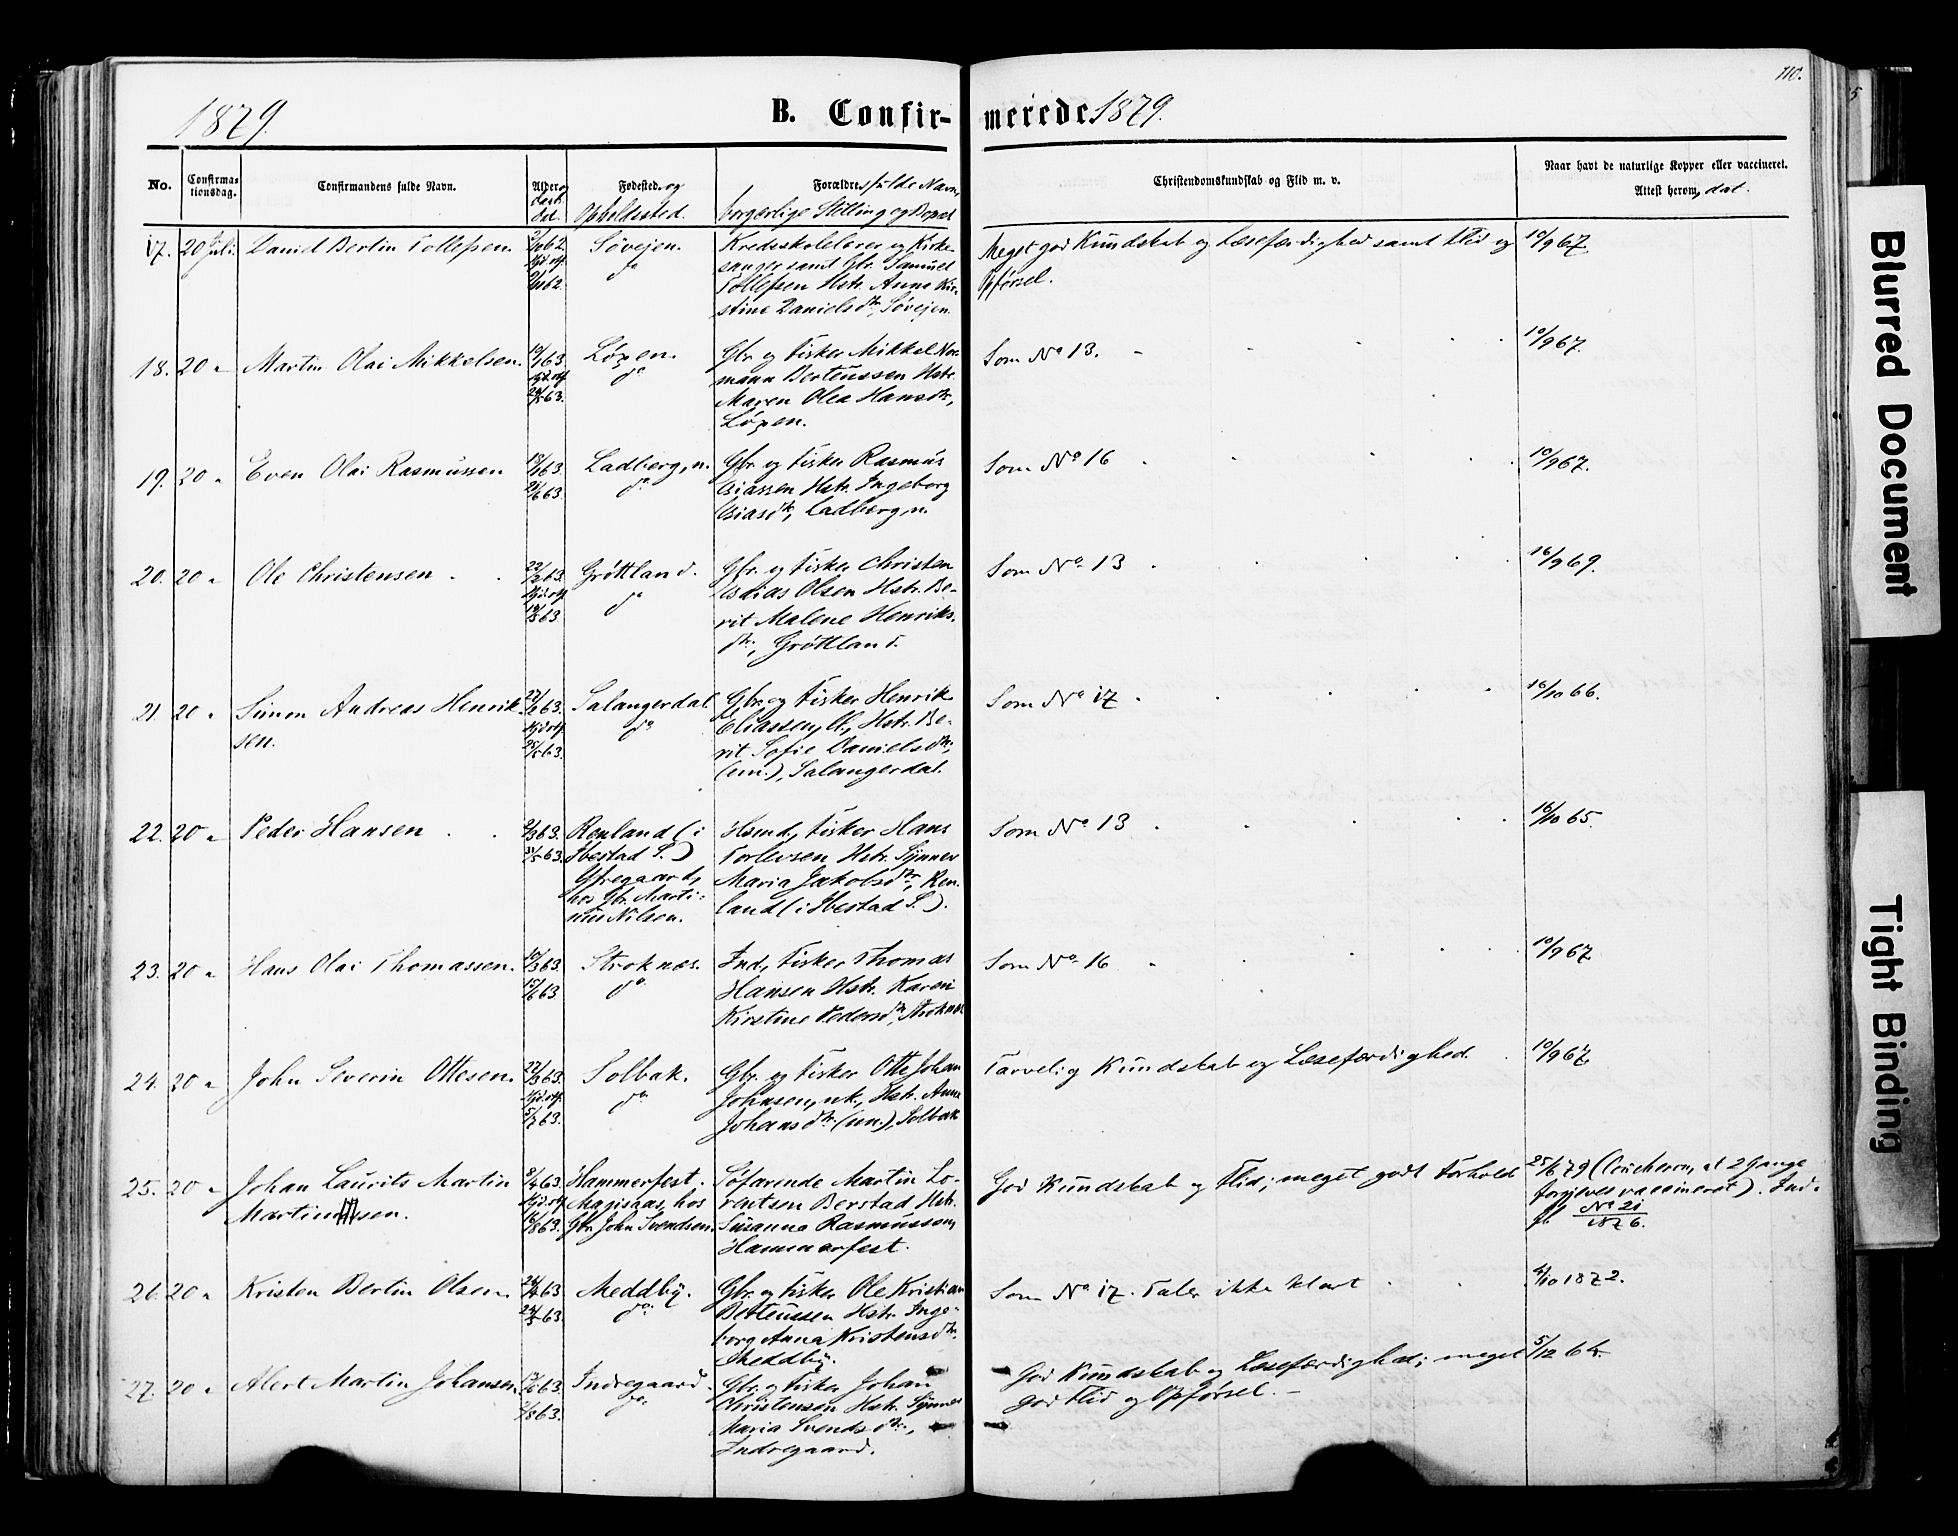 110.
5
1879.
B. Confir-
merede 1879.
No.
Confirma-
tionsdag.
Confirmandens fulde Navn.
Alder og
Fødested, og
Opholdssted.
Forældres fulde Navn,
borgerlige Stilling og Bopæl
Christendomskundskab og Flid m. v.
Naar havt de naturlige Kopper eller vaccineret.
Attest herom, dat.
17. 20 Juli. Daniel Bertin Tollefsen.
Søvejen.
do
Kredsskolelærer og Kirke-
sanger samt Gbr. Samuel
Tollefsen Hstr. Anne Kir-
stine Danielsdtr, Søvejen.
Meget god Kundskab og Læsefærdighed samt Flid og
Opførsel.
10/9 67.
18. 20 " Martin Olai Mikkelsen.
10/1 63.
Løxen.
do
Gbr. og Fisker Mikkel Nor-
mann Berteussen Hstr.
Maren Olea Hansdtr,
Løxen.
Som No 13.
10/9 67.
19. 20 " Even Olai Rasmussen
Ladberg, n.
do
Gbr. og Fisker Rasmus
Esiassen Hstr. Ingeborg
Esiasdtr, Ladberg, n.
Som No 16
10/9 67.
20. 20 " Ole Christensen
22/2 63.
Grøttland.
do
Gbr. og Fisker Christen
Esaias Olsen Hstr. Be-
rit Malene Henriks-
dtr., Grøttland.
Som No 13
16/9 69.
21. 20 " Simon Andreas Henrik-
sen.
Salangerdal
do
Gbr. og Fisker Henrik
Eliassen, Hstr. Be-
rit Sofie Danielsdtr,
Salangerdal.
Som No 17
16/10 66.
22. 20 " Peder Hansen
31/5 63.
Renland (i
Ibestad S.)
hos Gbr. Marti-
nus Nilsen.
Hsmd., Fisker Hans
Torlevsen Hstr. Synnev
Maria Jakobsdtr, Ren-
land (i Ibestad S.).
Som No 13
16/10 65.
23. 20 " Hans Olai Thomassen.
10/3 63.
Stroknæs.
do
Ind., Fisker Thomas
Hansen Hstr. Karen
Kirstine Pedersdtr, Stroknæs
Som No 16
10/9 67.
24. 20 " John Severin Ottesen.
22/3 63.
5/7 63.
Solbak.
do
Gbr. og Fisker Otte Johan
Johnsen, nk., Hstr. Anna
Johansdtr. (un.), Solbak
Tarvelig Kundskab og Læsefærdighed.
10/9 67.
25. 20 " Johan Laurits Martin
Martinsen.
8/4 63.
Hammerfest.
hos
Gbr. John Svendsen.
Søfarende Martin Lo-
rentsen Berstad Hstr.
Susanna Rasmussen,
Hammerfest.
God Kundskab og Flid; meget godt Forhold
25/6 79 ( at 2 Gange
forgjeves vaccineret). Ind-
fl No 21
1876.
26. 20 " Kristen Bertin Olsen.
24/4 63
Meddby.
do
Gbr. og Fisker Ole Kristian
Berteussen Hstr. Inge-
borg Anna Kristensdtr.
Meddby.
Som No 17. Taler ikke klart
4/10 1872.
27. 20 " Alert Martin Johansen
Indregaard.
do
Gbr. og Fisker Johan
Christensen Hstr. Synnev
Maria Svendsdtr.,
Indregaard.
God Kundskab og Læsefærdighed; meget
god Flid og Opførsel.
5/12 64.
Blurred Document
Tight Binding